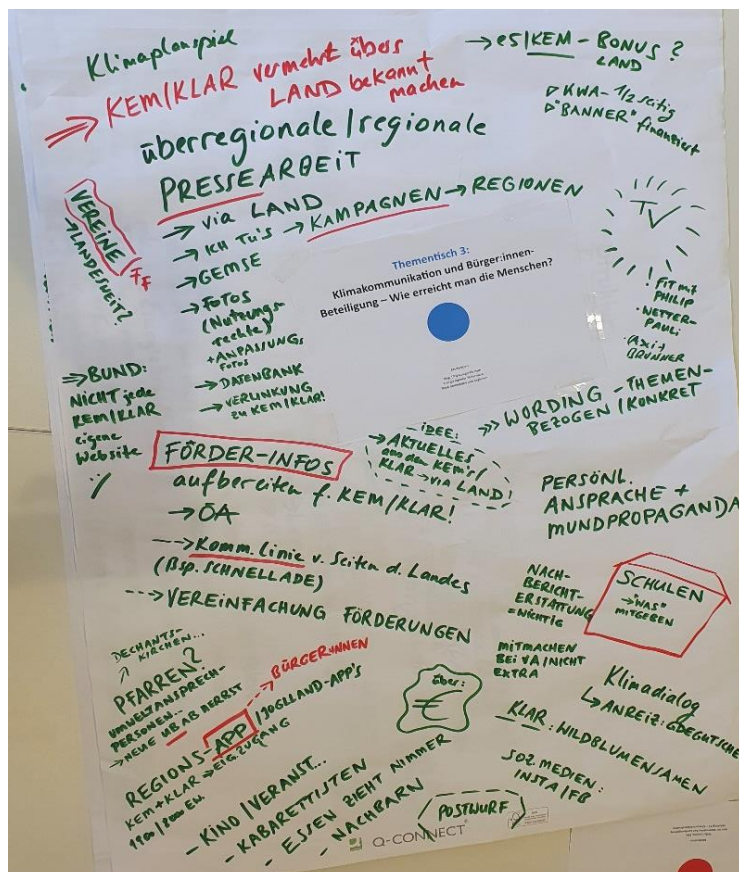 Klimaplanspiel
⇒ KEM/KLAR vermehrt übers
LAND bekannt
machen
→ e5/KEM - BONUS?
LAND
▷ KWA - 1/2 seitig
▷ "BANNER" finanziert
überregionale/regionale
PRESSEARBEIT
→ via LAND
→ ICH TU'S → KAMPAGNEN → REGIONEN
→ GEMSE
→ FOTOS
(Nutzungs-
rechte)
+ ANPASSUNGS
FOTOS
→ DATENBANK
→ VERLINKUNG
zu KEM/KLAR!
VEREINE
FF
→ LANDESWEIT?
TV
! FIT mit
PHILIP
· WETTER-
PAULI
· AXIT
BRUNNER
Thementisch 3:
Klimakommunikation und Bürger:innen-
Beteiligung – Wie erreicht man die Menschen?
⇒ BUND:
NICHT jede
KEM/KLAR
eigene
Website
IDEE:
→ AKTUELLES
aus den KEM's/
KLAR → via LAND!
>>> WORDING - THEMEN-
BEZOGEN/KONKRET
FÖRDER-INFOS
aufbereiten f. KEM/KLAR!
→ ÖA
--→ Komm.linie v. Seiten d. Landes
(Bsp. SCHNELLADE)
--→ VEREINFACHUNG FÖRDERUNGEN
PERSÖNL.
ANSPRACHE +
MUNDPROPAGANDA
NACH-
BERICHT-
ERSTATTUNG
= WICHTIG
SCHULEN
→ "WAS"
MITGEBEN
MITMACHEN
BEI VA/NICHT
EXTRA
DECHANTS-
KIRCHEN...
PFARREN?
UMWELTANSPRECH-
PERSONEN...
→ NEUE UB AB HERBST
BÜRGER:INNEN
REGIONS-APP/JOGLLAND-APP's
KEM + KLAR → EIG. ZUGANG
über:
€
Klimadialog
↳ ANREIZ: GDEGUTSCHE
KLAR: WILDBLUMENSAMEN
SOZ MEDIEN:
INSTA/FB
- KINO/VERANST...
- KABARETTISTEN
- ESSEN ZIEHT NIMMER
- NACHBARN
POSTWURF
Q-CONNECT